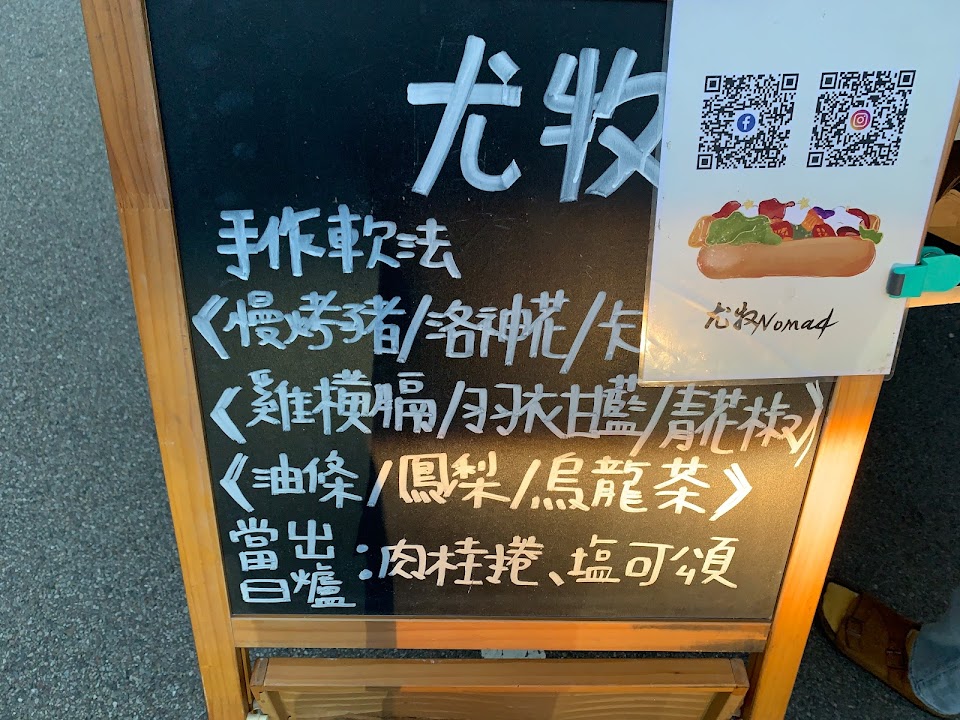 尤牧
手作軟法
《慢烤豬/洛神花/卡
《雞橫膈/羽衣甘藍/青花椒》
《油條/鳳梨/烏龍茶》
當日出爐:肉桂捲、塩可頌
尤牧Nomad